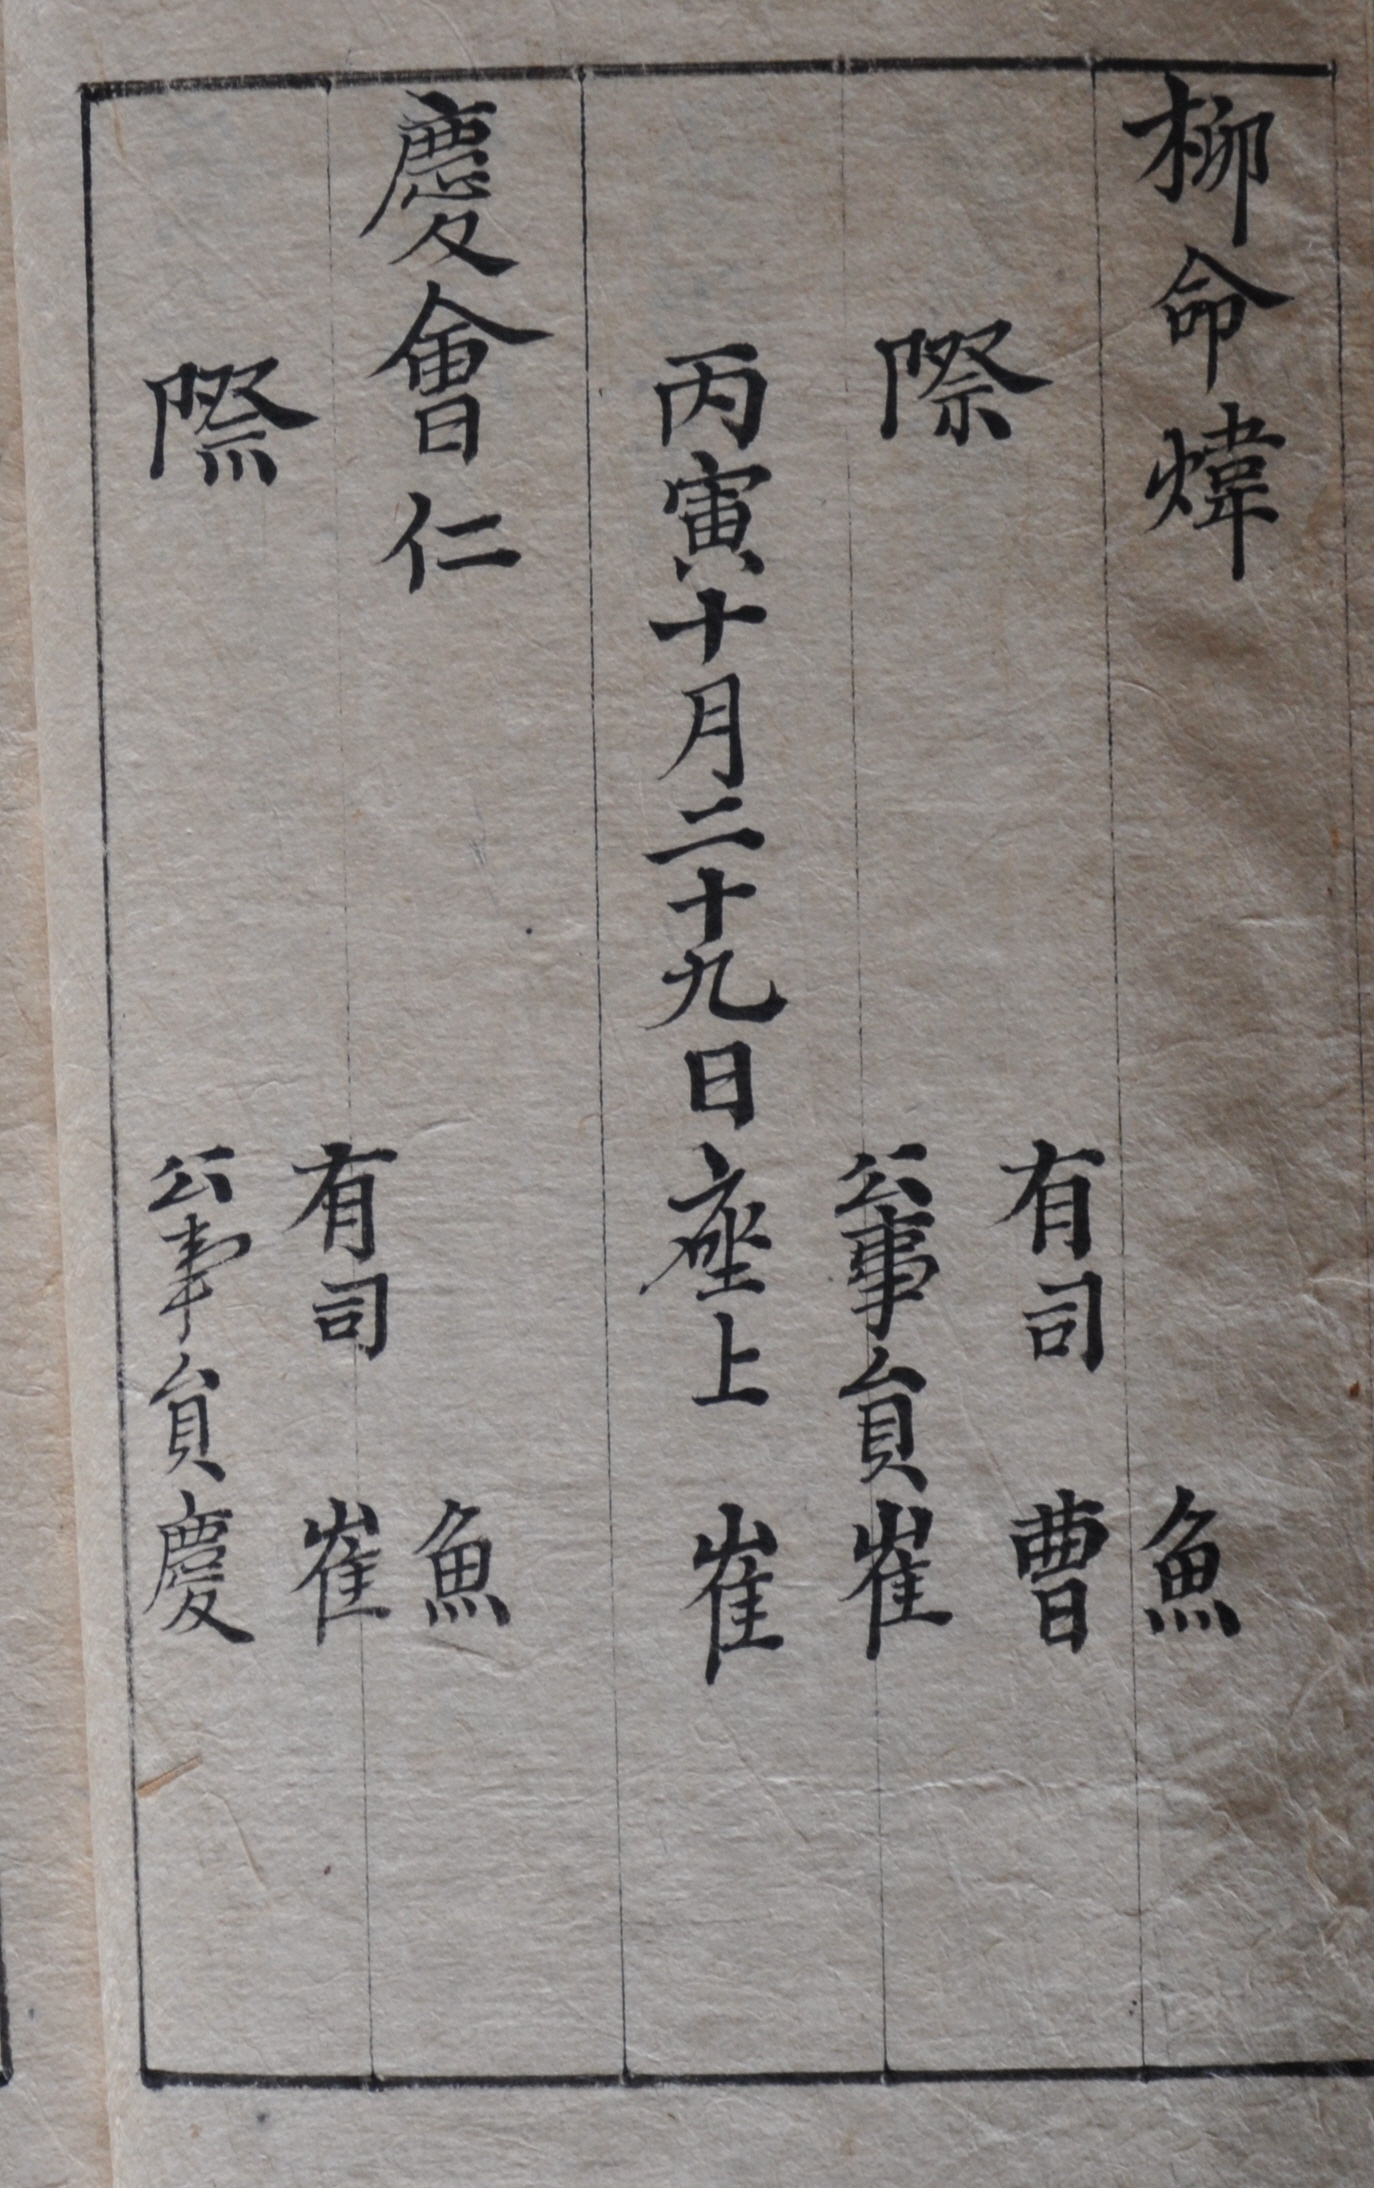 柳命煒
魚
有司 曹
際
公事員 崔
丙寅十月二十九日座上 崔
慶會仁
魚
有司 崔
際
公事員 慶